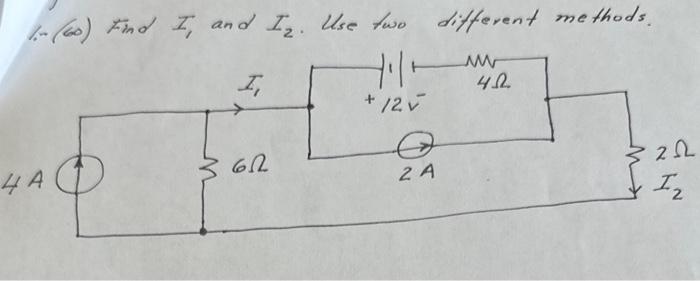 1.- (60) Find I₁ and I₂. Use two different methods.
I₁
+ 12 v -
4Ω
4 A
6Ω
2 A
2 Ω
I₂